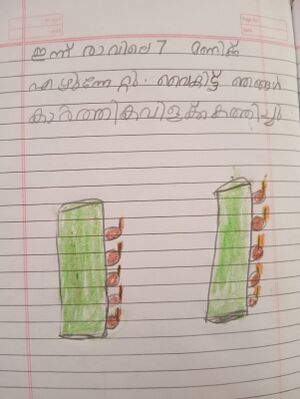 ഇന്ന് രാവിലെ 7 മണിക്ക്
എഴുന്നേറ്റു. വൈകിട്ട് ഞങ്ങൾ
കാർത്തികവിളക്ക് കത്തിച്ചു